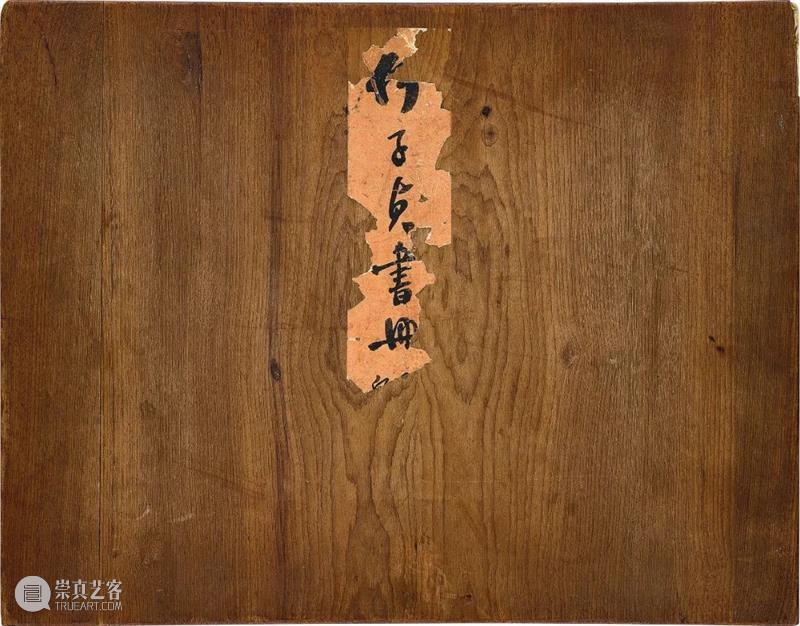 何子貞書冊
崇真艺客
TRUEART.COM